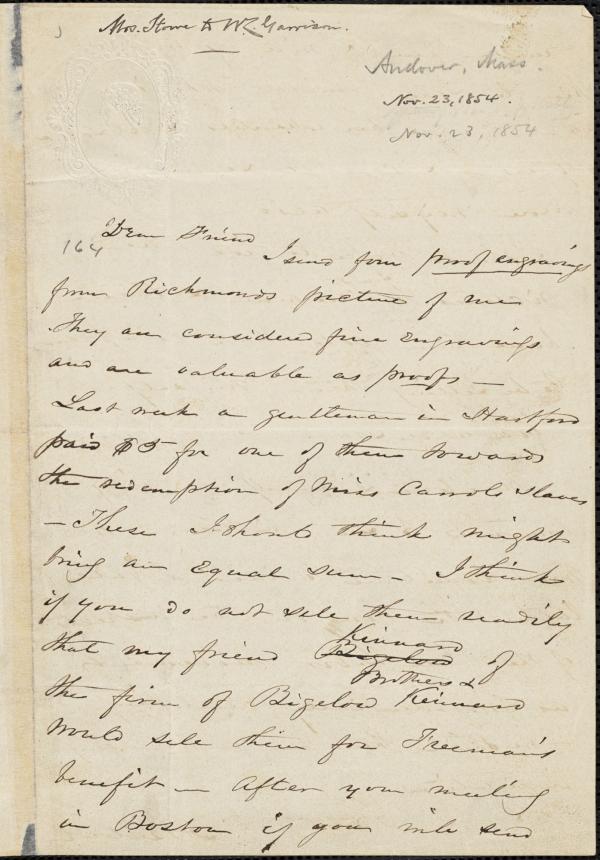 Mrs. Stowe to W. L. Garrison.
Andover, Mass.
Nov. 23, 1854.
Nov. 23, 1854
164
Dear Friend
I send four proof engravings
from Richmonds picture of me
They are considered fine Engravings
and are valuable as proofs —
Last week a gentleman in Hartford
paid $5 for one of them towards
the redemption of Miss Carrols slaves
— These I should think might
bring an Equal sum — I think
if you do not sele them readily
that my friend Bigelow Kinnard of
Brothers &
the firm of Bigelow Keinnard
would sele them for Freeman's
benefit — After your meeting
in Boston if you wile send